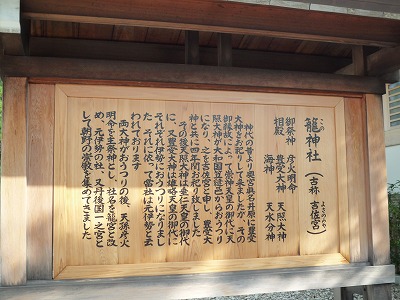 この
籠神社(古称 吉佐宮)
よさのみや
御祭神 彦火明命
相殿 豊受大神 天照大神
海神 天水分神
神代の昔より奥宮眞名井原に豊受
大神をお祀りして来ましたが その
御縁故によって崇神天皇の御代に天
照大神が大和国笠縫邑からおうつり
になり、之を吉佐宮と申し、豊受大
神と共に四年間お祀り致しました
その後天照大神は垂仁天皇の御代
に、又豊受大神は雄略天皇の御代に
それぞれ伊勢へおうつりになりまし
た それに依って當社は元伊勢と云
われております
両大神がおうつりの後、天孫彦火
明命を主祭神とし、社名を籠宮と改
め、元伊勢の社、又丹後國一之宮と
して朝野の崇敬を集めてきました